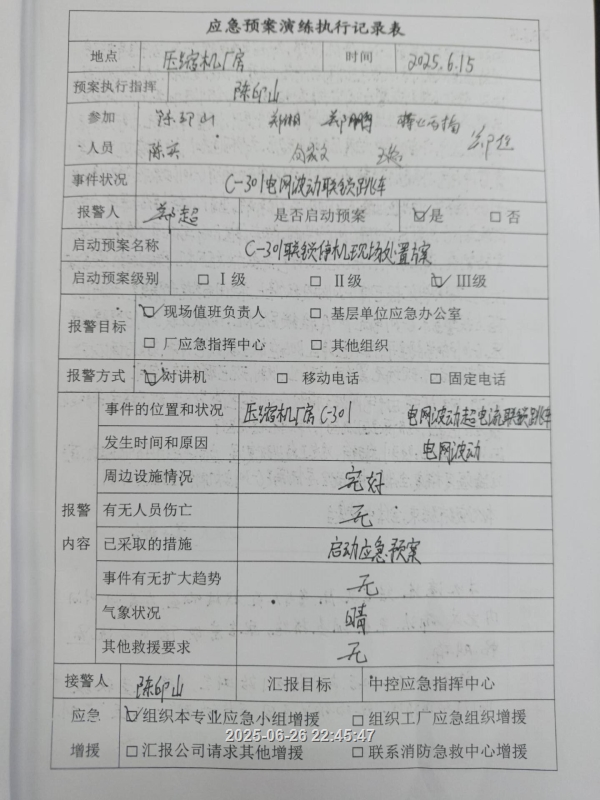 应急预案演练执行记录表
地点 压缩机厂房 时间 2025.6.15
预案执行指挥 陈印山
参加 陈印山 郑鹏
人员 陈兵
事件状况 C-301电网波动联锁跳车
报警人 郑超 是否启动预案 ☑是 □否
启动预案名称 C-301联锁停机现场处置方案
启动预案级别 □Ⅰ级 □Ⅱ级 ☑Ⅲ级
报警目标 ☑现场值班负责人 □基层单位应急办公室
□厂应急指挥中心 □其他组织
报警方式 ☑对讲机 □移动电话 □固定电话
报警内容
事件的位置和状况 压缩机厂房C-301 电网波动超电流联锁跳车
发生时间和原因 电网波动
周边设施情况 完好
有无人员伤亡 无
已采取的措施 启动应急预案
事件有无扩大趋势 无
气象状况 晴
其他救援要求 无
接警人 陈印山 汇报目标 中控应急指挥中心
应急 ☑组织本专业应急小组增援 □组织工厂应急组织增援
2025-06-26 22:45:47
增援 □汇报公司请求其他增援 □联系消防急救中心增援